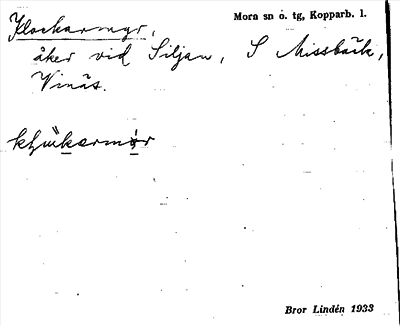 Klockarmyr,
Mora sn o. tg, Kopparb. l.
åker vid Siljan, S Missbäck,
Vinäs.
Bror Lindén 1933